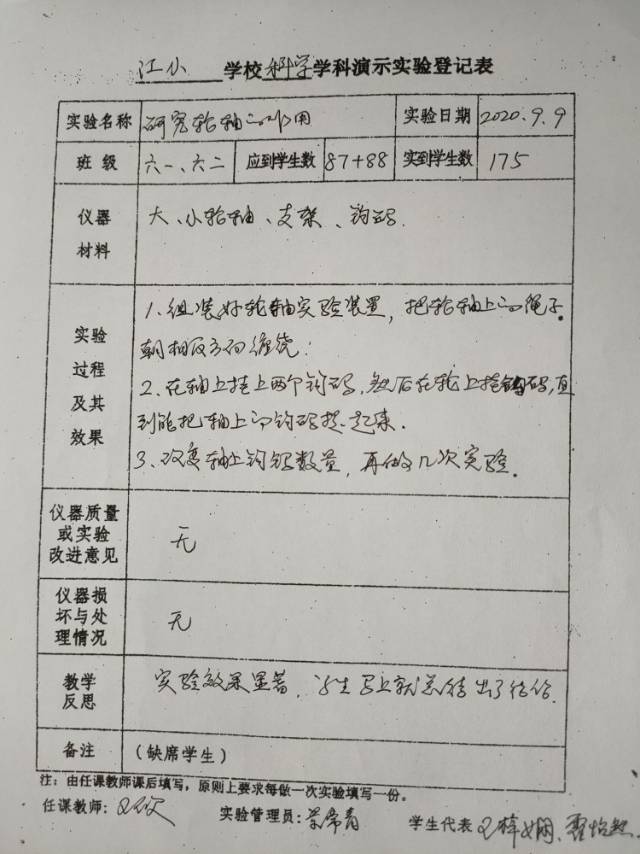 江小 学校 科学 学科演示实验登记表
实验名称 研究轮轴的作用 实验日期 2020.9.9
班级 六一、六二 应到学生数 87+88 实到学生数 175
仪器
材料
大、小轮轴、支架、钩码.
实验
过程
及其
效果
1、组装好轮轴实验装置，把轮轴上的绳子
朝相反方向缠绕；
2、在轴上挂上两个钩码，然后在轮上挂钩码，直
到能把轴上的钩码提起来.
3、改变轴上钩码数量，再做几次实验.
仪器质量
或实验
改进意见
无
仪器损
坏与处
理情况
无
教学
反思
实验效果显著，学生马上就总结出了结论.
备注 (缺席学生)
注：由任课教师课后填写，原则上要求每做一次实验填写一份。
任课教师： 实验管理员： 学生代表